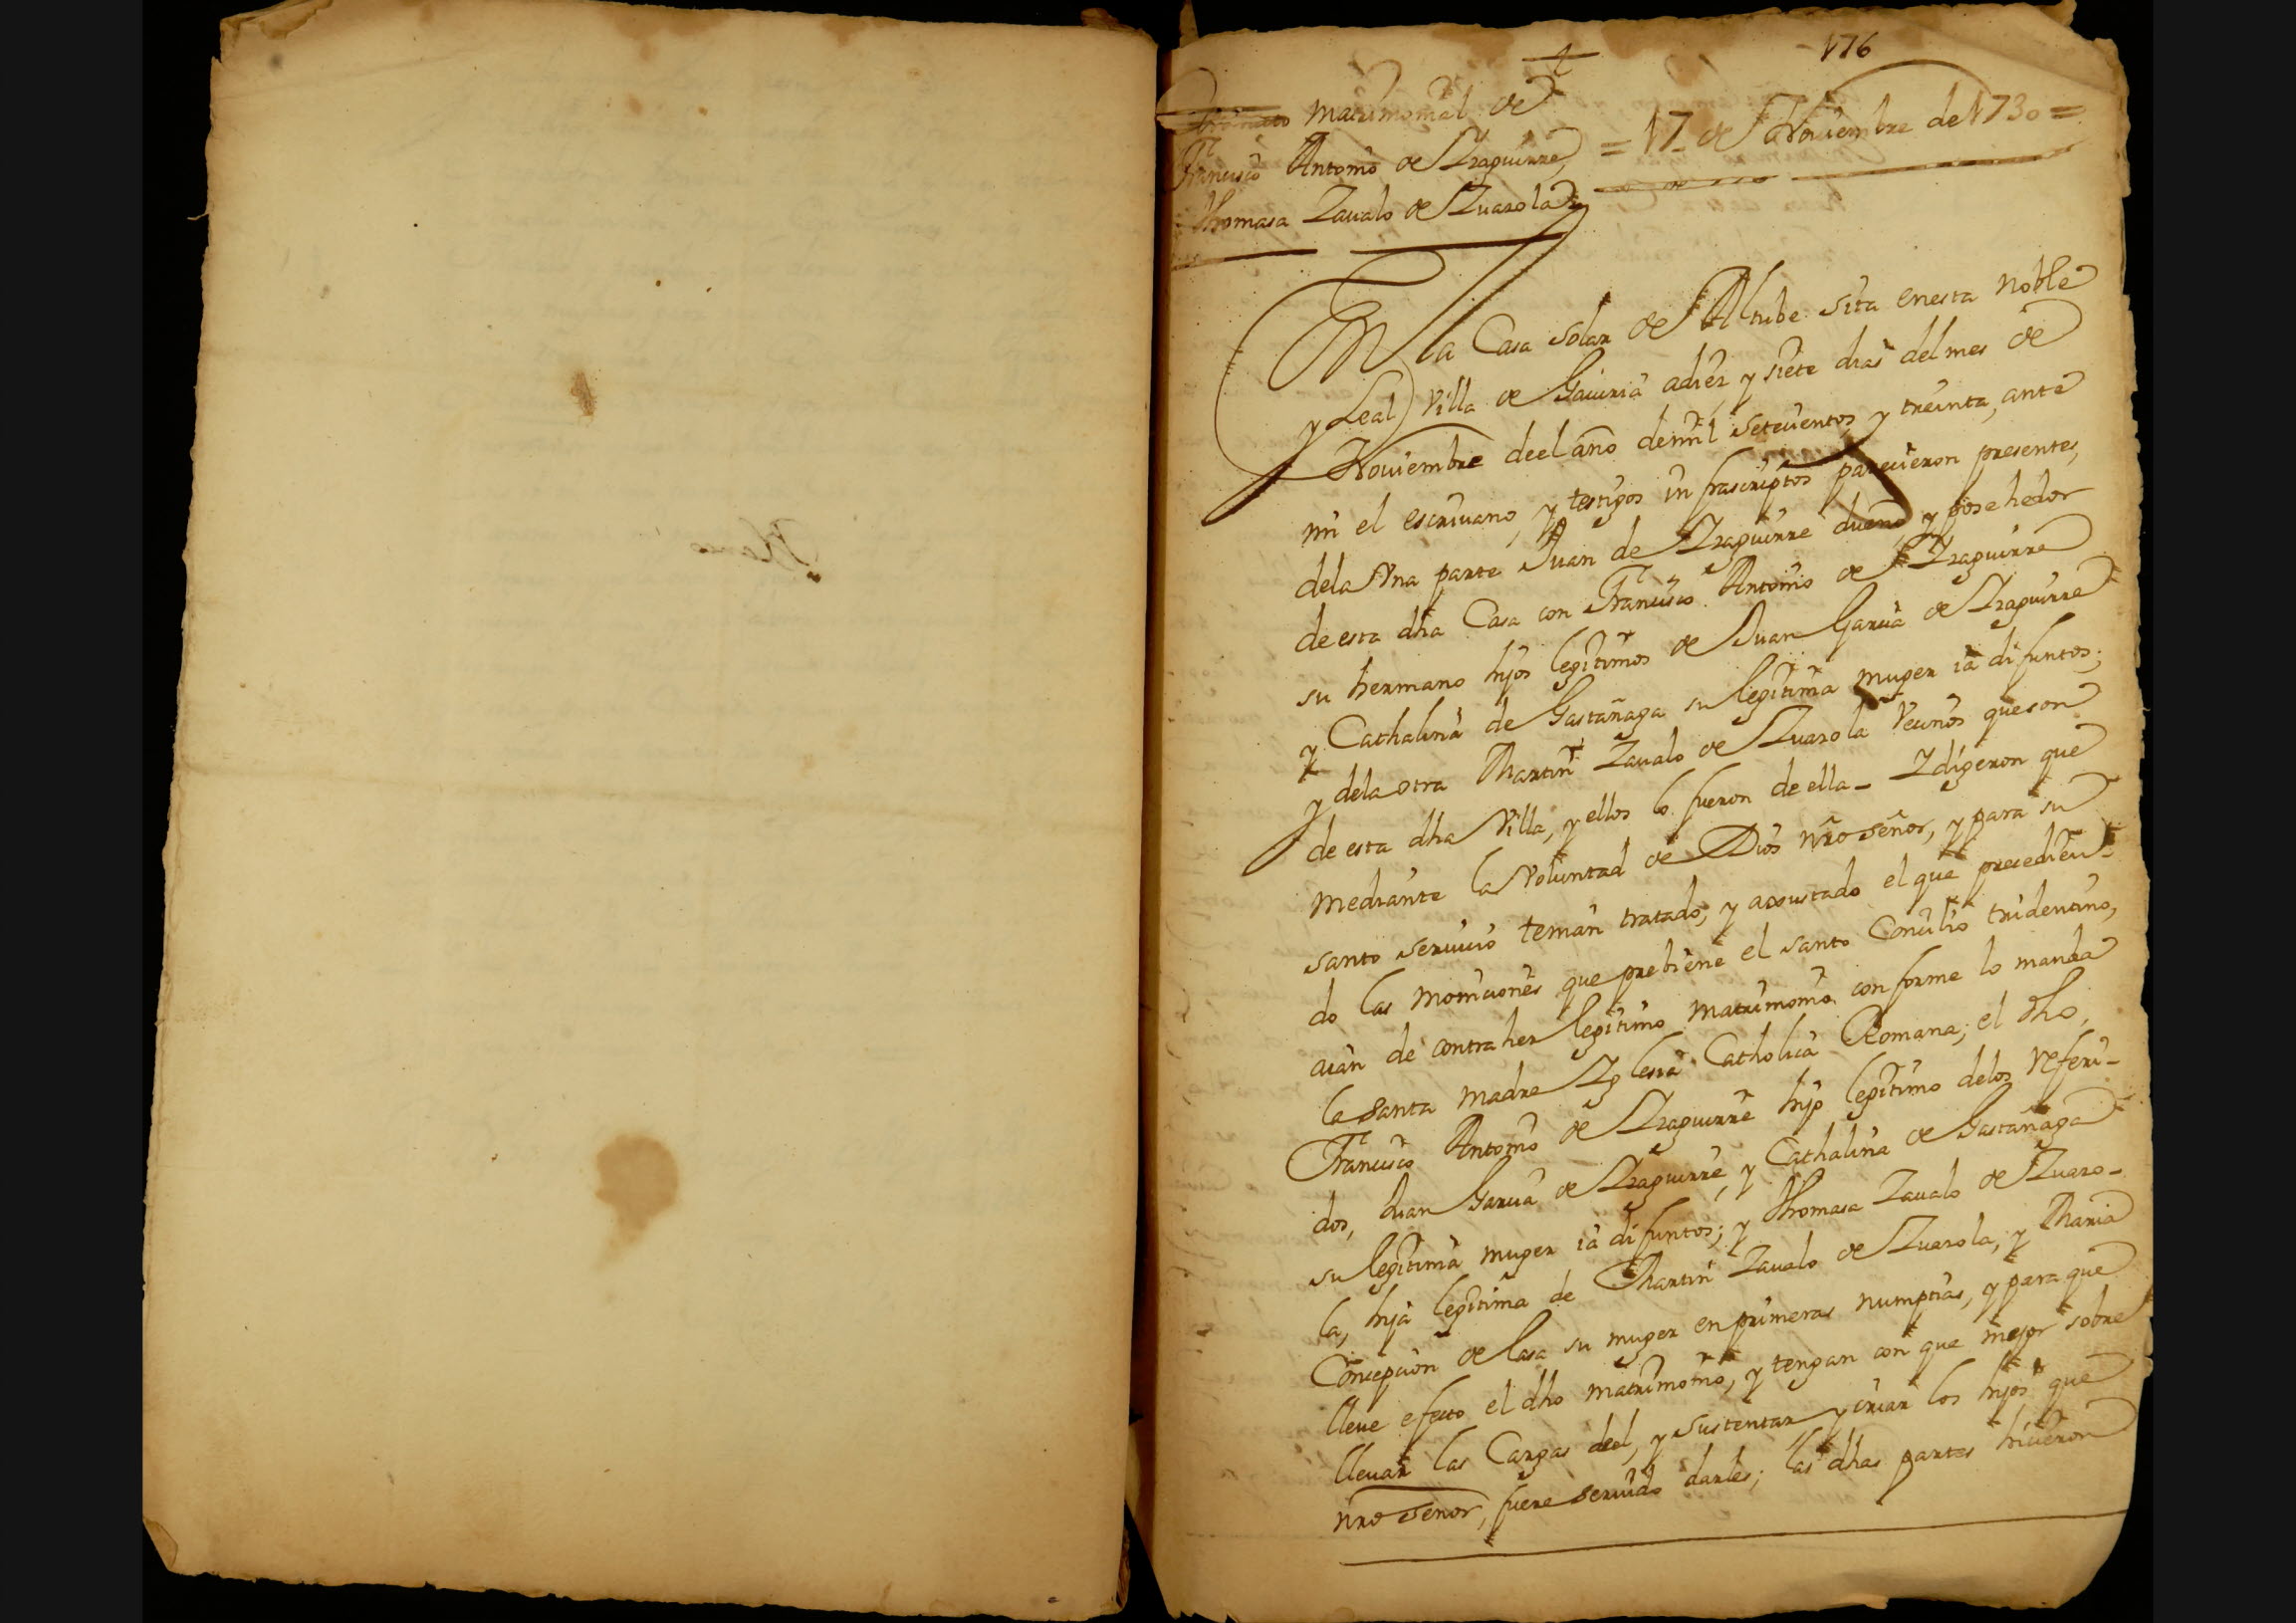 176
Contrato matrimonial de
Francisco Antonio de Yzaguirre,
Thomasa Zaualo de Zuazola
= 17 de Nouiembre de 1730 =
En la Casa solar de Altube sita enesta noble
y Leal Villa de Gauiria adiez, y siete dias del mes de
Nouiembre deel año demil setecientos y treinta, ante
mi el escriuano, y testigos infrascriptos parecieron presentes,
dela Vna parte Juan de Yzaguirre dueño, y posehedor
de esta dha Casa con Francisco Antonio de Yzaguirre
su hermano hijos legitimos de Juan Garcia de Yzaguirre
y Cathalina de Gastañaga su legitima muger ia difuntos;
y dela otra Martin Zaualo de Zuazola Vecinos que son
de esta dha Villa, y ellos lo fueron de ella - Y digeron que
mediante la Voluntad de Dios nro señor, y para su
santo seruicio tenian tratado, y axustado el que precedien-
do las moniciones que prebiene el santo Concilio tridentino,
aian de contraher legitimo matrimonio conforme lo manda
la santa madre Yglesia Catholica Romana; el dho
Francisco Antonio de Yzaguirre hijo legitimo delos referi-
dos, Juan Garcia de Yzaguirre, y Cathalina de Gastañaga
su legitima muger ia difuntos; y Thomasa Zaualo de Zuazo-
la, hija legitima de Martin Zaualo de Zuazola, y Maria
Concepcion de Lasa su muger en primeras numptias, y para que
lleue efecto el dho matrimonio, y tengan con que mejor sobre
lleuar las Cargas deel, y sustentar y criar los hijos que
nro señor, fuere seruido darles; las dhas partes hicieron